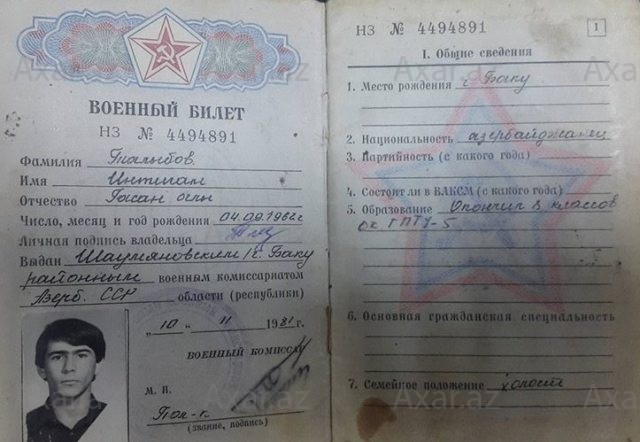 ВОЕННЫЙ БИЛЕТ
НЗ № 4494891
Фамилия Талыбов
Имя Интигам
Отчество Гасан оглы
Число, месяц и год рождения 04.09.1962г
Личная подпись владельца
Выдан Шаумяновским г. Баку
районным военным комиссариатом
Азерб. ССР области (республики)
„10" 11 1981 г.
ВОЕННЫЙ КОМИССАР
М. П.
(звание, подпись)
НЗ № 4494891
1
I. Общие сведения
1. Место рождения г. Баку
2. Национальность азербайджанец
3. Партийность (с какого года)
4. Состоит ли в ВЛКСМ (с какого года)
5. Образование Окончил 8 классов
ок. ГПТУ-5
6. Основная гражданская специальность
7. Семейное положение холост
Axar.az
Axar.az
Axar.az
Axar.az
Axar.az
Axar.az